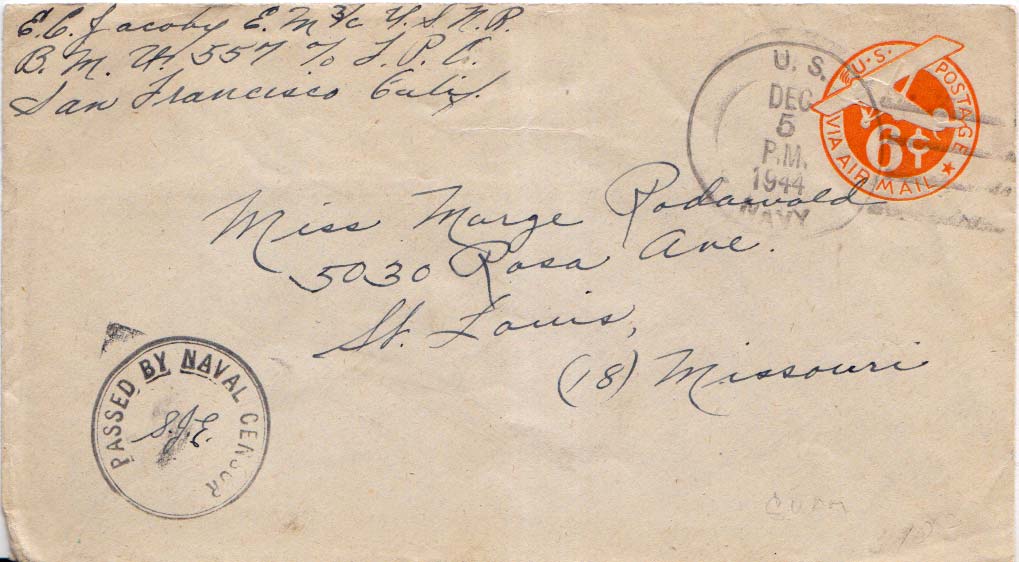 E.C. Jacoby E.M 3/c U.S.N.R.
B.M.U. 557 c/o F.P.O.
San Francisco Calif.
U.S.
DEC
5
P.M.
1944
NAVY
U.S. POSTAGE
6¢
VIA AIR MAIL
Miss Marge Rodawald
5030 Rosa Ave.
St. Louis,
(18) Missouri
PASSED BY NAVAL CENSOR
S.J.E.